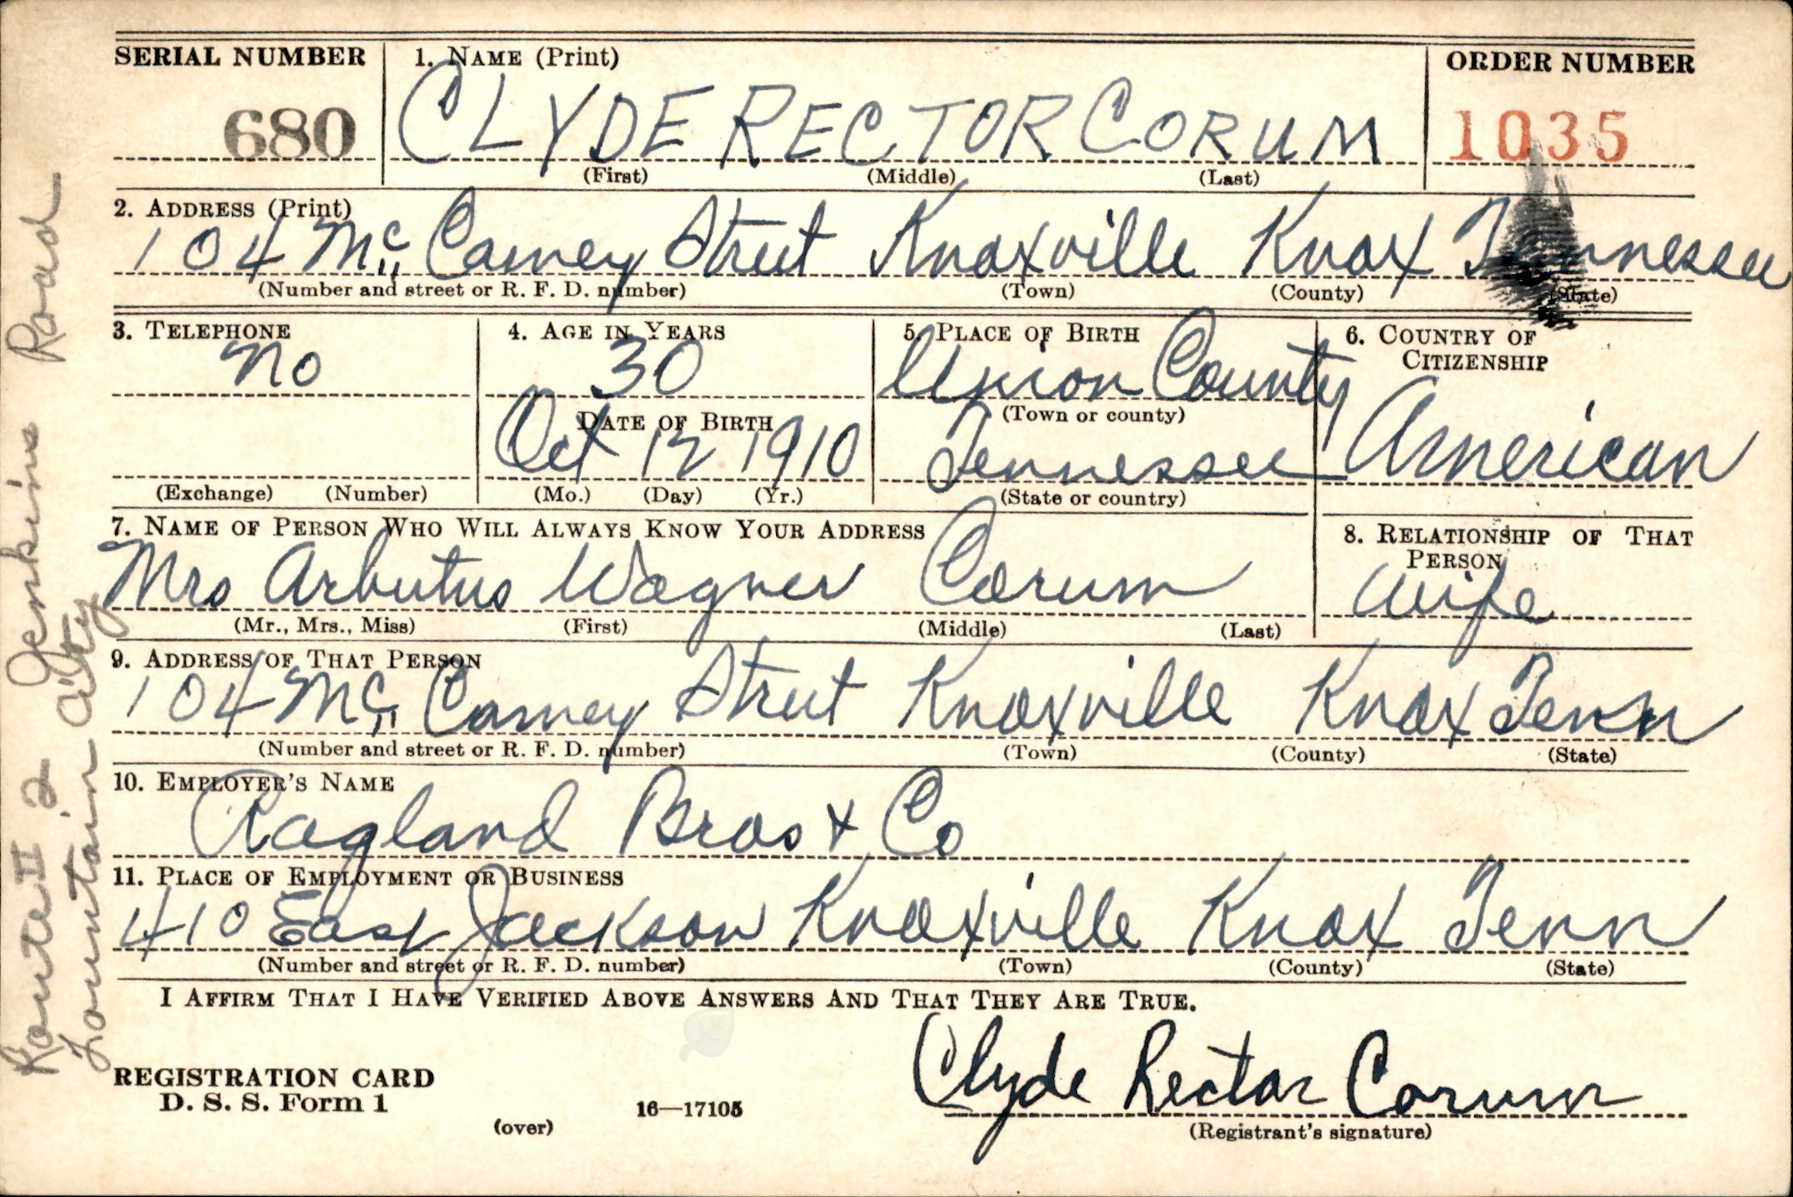 SERIAL NUMBER
680
1. NAME (Print)
CLYDE RECTOR CORUM
(First) (Middle) (Last)
ORDER NUMBER
1035
2. ADDRESS (Print)
104 Mc Camey Street Knoxville Knox Tennessee
(Number and street or R. F. D. number) (Town) (County) (State)
3. TELEPHONE
No
(Exchange) (Number)
4. AGE IN YEARS
30
DATE OF BIRTH
Oct 12 1910
(Mo.) (Day) (Yr.)
5. PLACE OF BIRTH
Union County
(Town or county)
Tennessee
(State or country)
6. COUNTRY OF
CITIZENSHIP
American
7. NAME OF PERSON WHO WILL ALWAYS KNOW YOUR ADDRESS
Mrs Arbutus Wagner Corum
(Mr., Mrs., Miss) (First) (Middle) (Last)
8. RELATIONSHIP OF THAT
PERSON
Wife
9. ADDRESS OF THAT PERSON
104 Mc Camey Street Knoxville Knox Tenn
(Number and street or R. F. D. number) (Town) (County) (State)
10. EMPLOYER'S NAME
Ragland Bros + Co
11. PLACE OF EMPLOYMENT OR BUSINESS
410 East Jackson Knoxville Knox Tenn
(Number and street or R. F. D. number) (Town) (County) (State)
I AFFIRM THAT I HAVE VERIFIED ABOVE ANSWERS AND THAT THEY ARE TRUE.
Clyde Rector Corum
(Registrant's signature)
REGISTRATION CARD
D. S. S. Form 1
(over)
16—17105
Route II 2 Jenkins Road
Fountain City